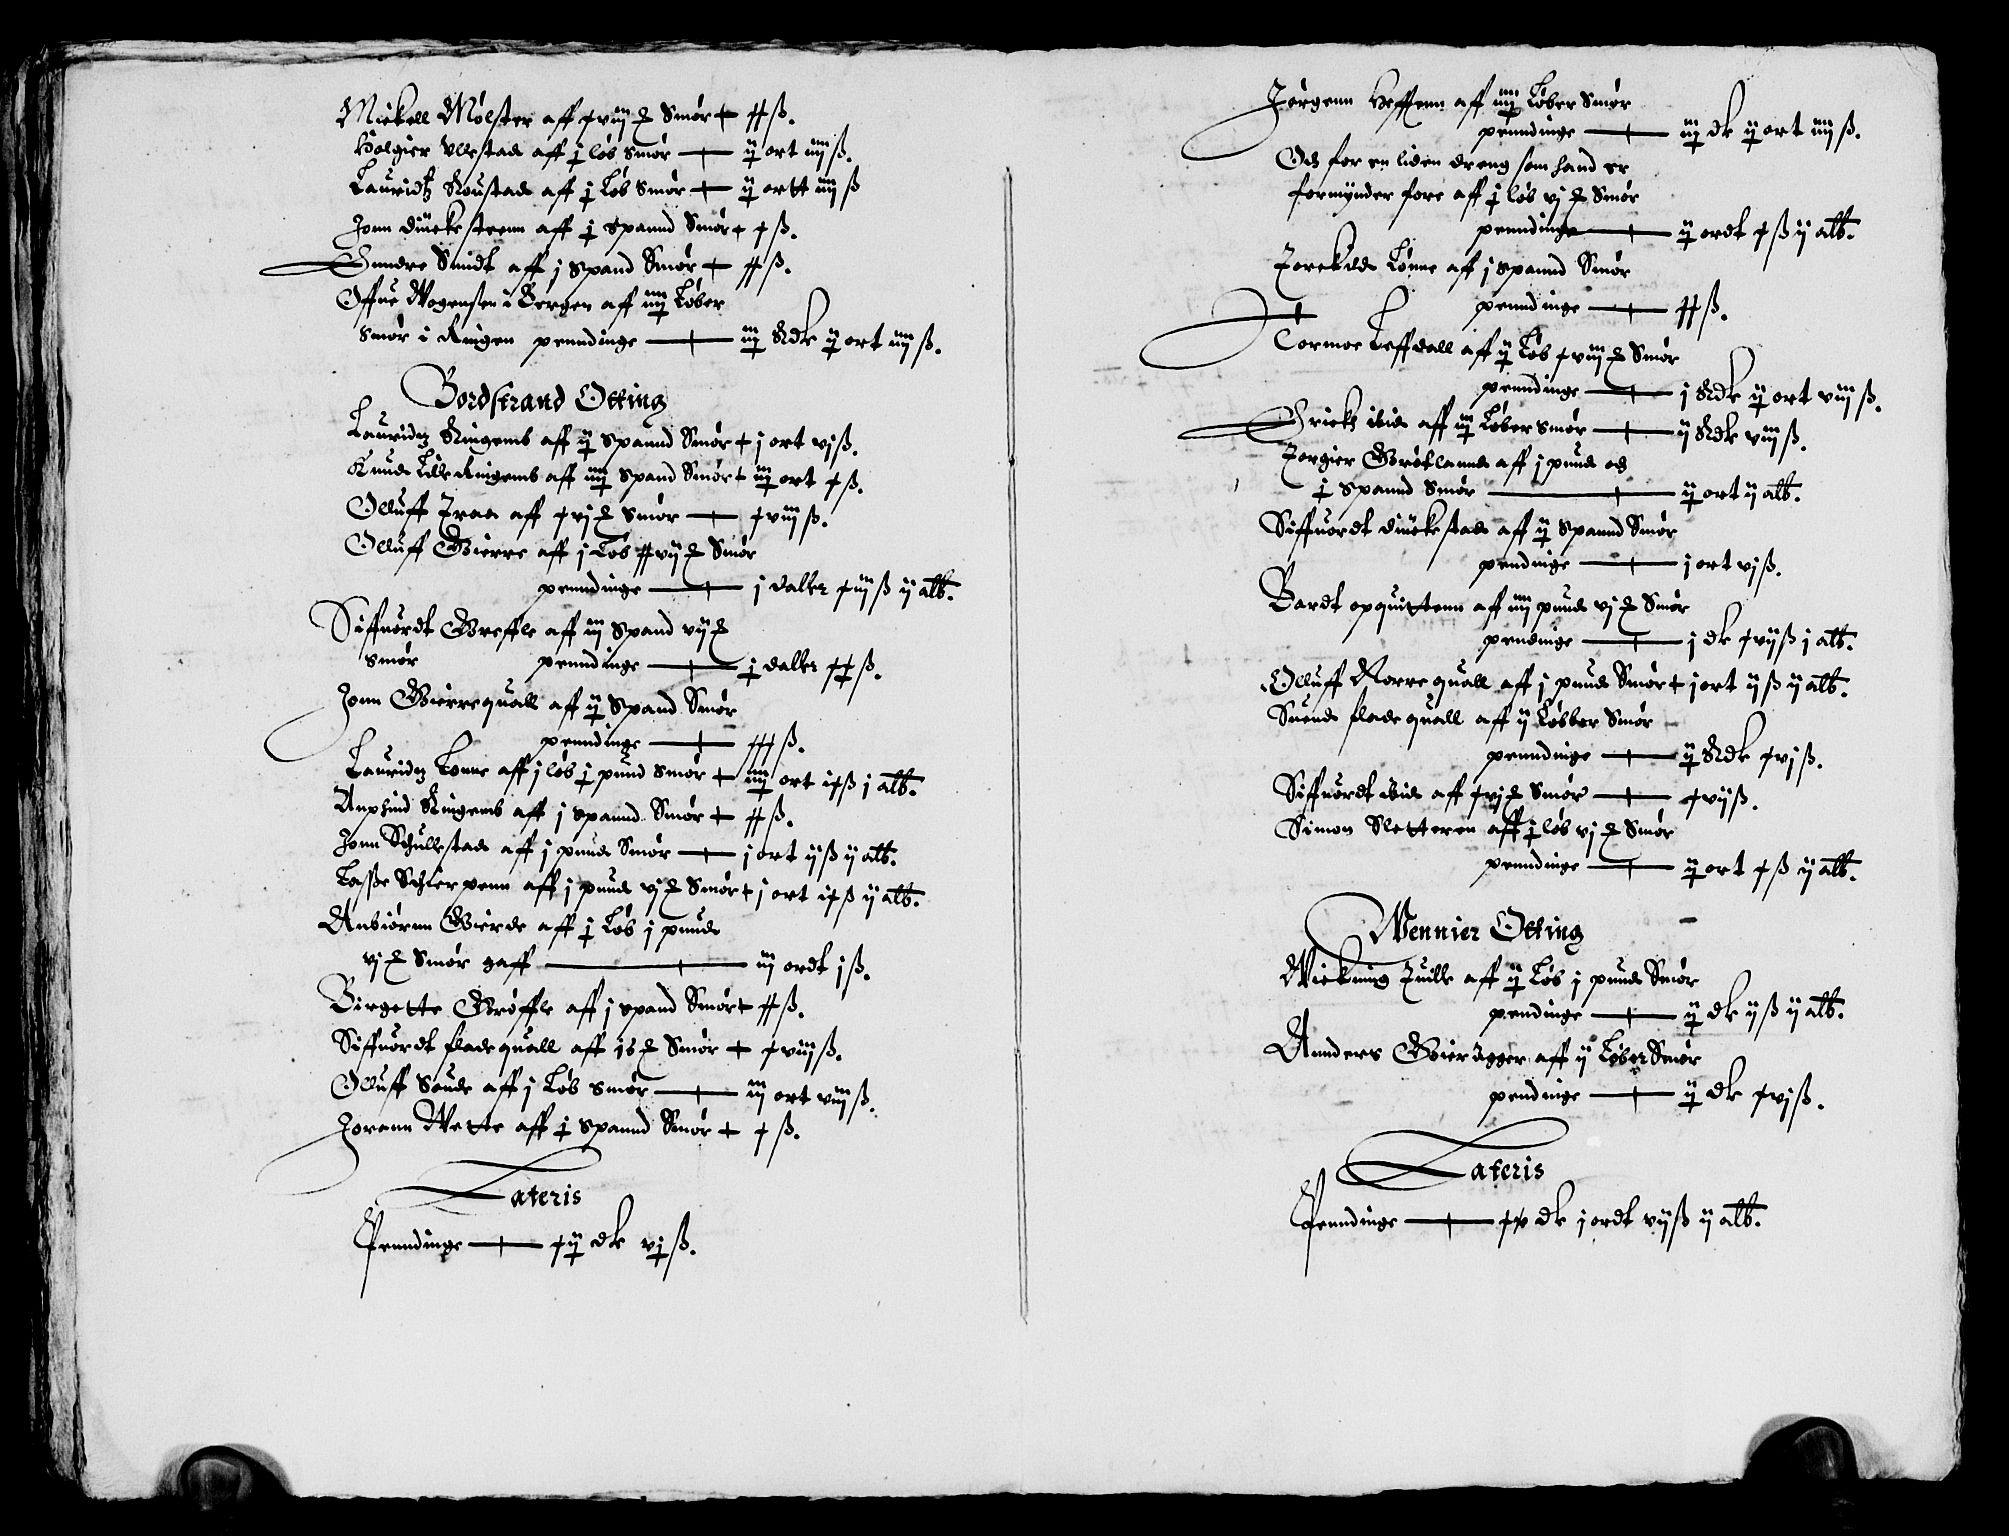 Mickell Mølster aff xviij ℔ Smør xx ß.
Holgier Vllestad aff j løb smør ij ort iiij ß.
Lauridtz Roustad aff j Løb Smør ij ortt iiij ß
Jonn diuckesteenn aff j spannd Smør x ß.
Gundre Smidt aff j spand Smør xx ß.
Offue Mogensen i Bergen aff iiij Løber
Smør i Ringen penndinge iij Rdlr ij ort iiij ß.
Bordstrand Otting
Lauridtz Ringems aff ij spannd Smør j ort vj ß.
Knud Lille Ringems aff iiij spand Smør iij ort x ß.
Olluff Traa aff xvj ℔ Smør xviij ß.
Olluff Gierre aff j Løb xxvij ℔ Smør
penndinge j daller xiij ß ij alb.
Siffuordt Greffle aff iij Spand vij ℔
smør penndinge j daller xx ß.
Jonn Gierrequall aff ij Spand Smør
penndinge xxx ß.
Lauridtz Lønne aff j løb j pund Smør iiij ort ix ß j alb.
Anphind Ringems aff j spannd Smør xx ß.
Jonn Schullestad aff j pund Smør j ort ij ß ij alb.
Lasse Schierpenn aff j pund vj ℔ Smør j ort ix ß ij alb.
Anbiørnn Gierde aff j Løb j pund
vj ℔ Smør gaff iij ordt j ß.
Birgette Grøffle aff j spand Smør xx ß.
Siffuordt fladequall aff 16 ℔ Smør xviij ß.
Olluff Soude aff j Løb Smør iij ort viij ß.
Jorann Mette aff j Spannd Smør x ß.
Lateris
Penndinge xij dlr vj ß.
Jørgenn Hefftenn aff iiij Løber Smør
penndinge iij dlr ij ort iiij ß.
Och for en liden dreng som hand er
formynder fore aff j løb vj ℔ Smør
penndinge ij ordt x ß ij alb.
Torekild Lønne aff j spannd Smør
penndinge xx ß.
Tormoe Leffdall aff ij Løb xviij ℔ Smør
penndinge j Rdlr ij ort viij ß.
Erick ibid aff iij Løber smør ij Rdlr viij ß.
Torgier Grøtlannd aff j pund och
j Spannd Smør ij ort ij alb.
Siffuordt diuckestad aff ij Spannd Smør
pendinge j ort vj ß.
Bardt opquittenn aff iiij pund vj ℔ Smør
pendinge j dlr xvij ß j alb.
Olluff Rorrequall aff j pund Smør j ort ij ß ij alb.
Suend fladequall aff ij Løbber Smør
penndinge ij Rdlr xvj ß.
Siffuordt ibid aff xvj ℔ Smør xvij ß.
Simon Sletteren aff j løb vj ℔ Smør
penndinge ij ort x ß ij alb.
Wennier Otting
Wickinng Tuille aff ij Løb j pund Smør
pendinge ij dlr ij ß ij alb.
Annders Gieragger aff ij Løber Smør
pendinge ij dlr xvj ß.
Lateris
Penndinge xv dlr j ordt vij ß ij alb.